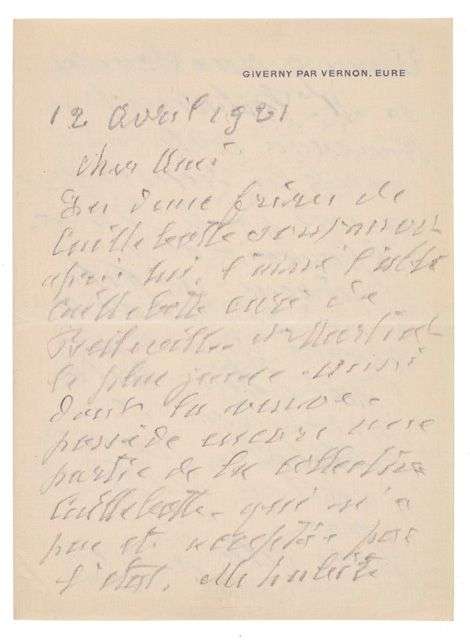 GIVERNY PAR VERNON. EURE
12 Avril 1921
cher Ami
Les deux frères de
Caillebotte sont morts
après lui, l'ainé l'abbé
Caillebotte curé de
et Martial
le plus jeune aussi
dont la veuve
possède encore une
partie de la collection
Caillebotte qui n'a
pas été acceptée par
l'état, elle habite